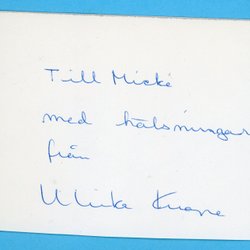 Till Micke
med hälsningar
från
Ulrika Knape